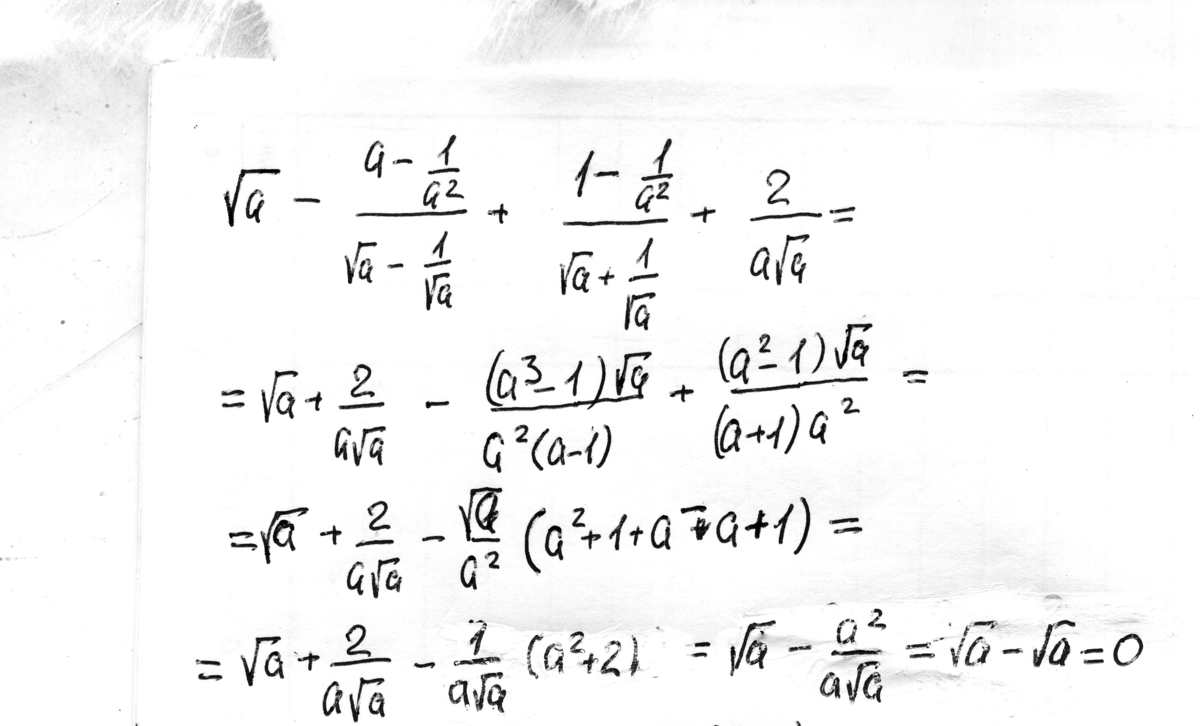 √a - (a - 1/a²)/(√a - 1/√a) + (1 - 1/a²)/(√a + 1/√a) + 2/(a√a) =
= √a + 2/(a√a) - (a³-1)√a/(a²(a-1)) + (a²-1)√a/((a+1)a²) =
= √a + 2/(a√a) - √a/a² (a²+1+a-a+1) =
= √a + 2/(a√a) - 1/(a√a) (a²+2) = √a - a²/(a√a) = √a - √a = 0